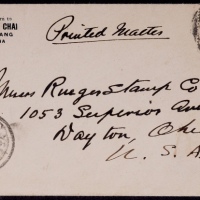 CHAI
ANG
Printed Matter
Ruegers Stamp Co
1053 Superior Ave
Dayton, Ohi
U. S. A